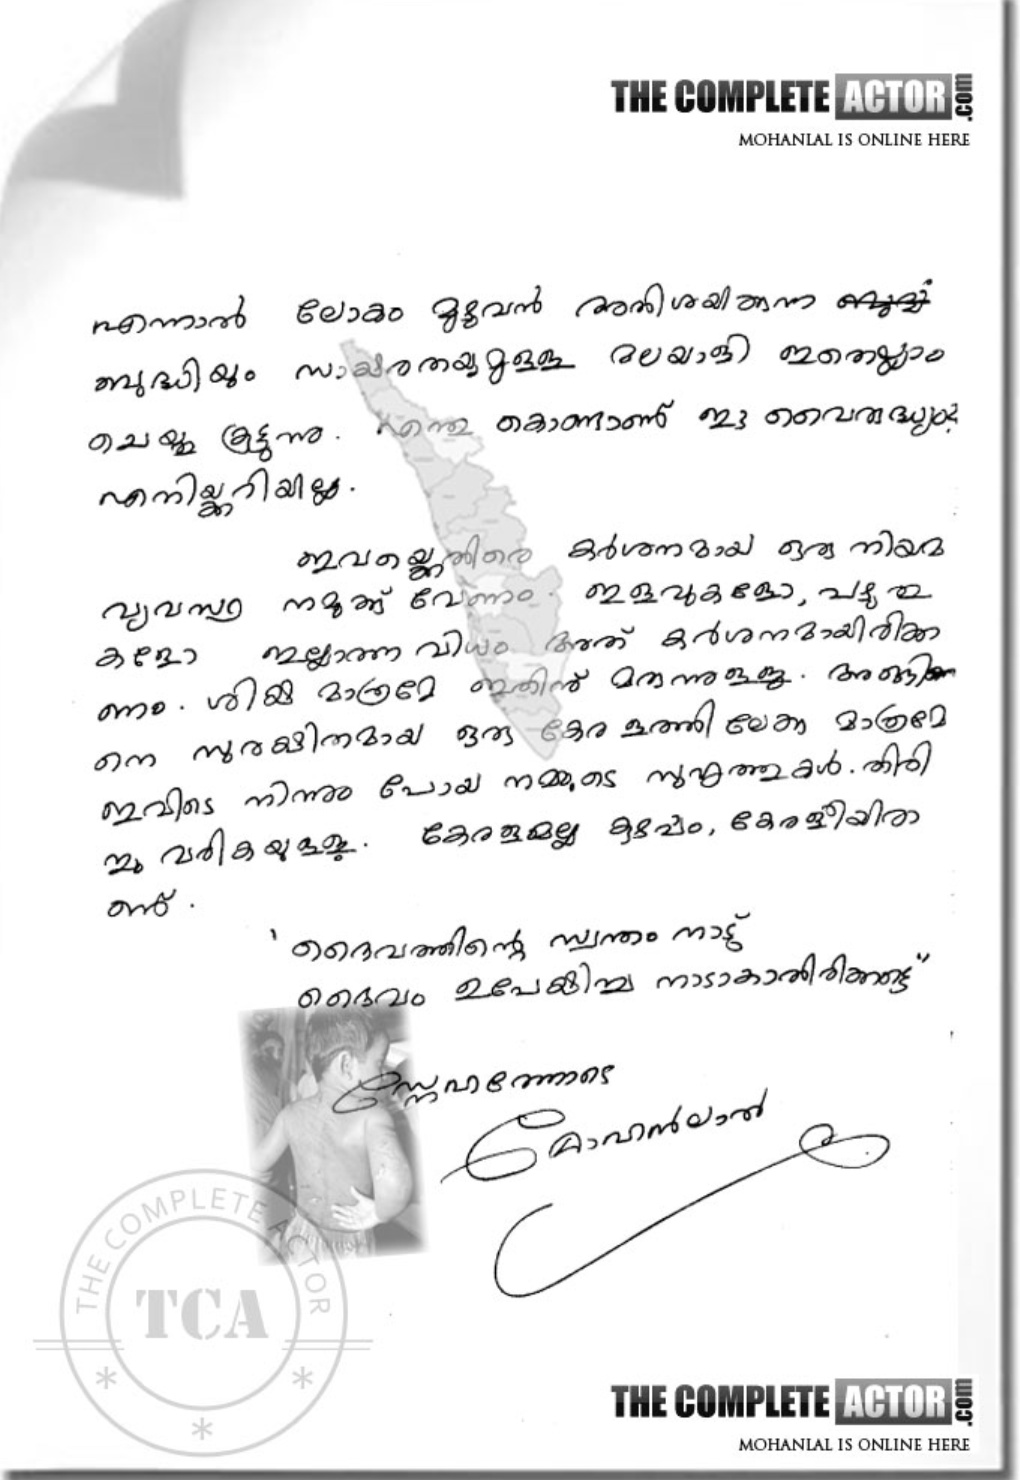 THE COMPLETE ACTOR .com
MOHANLAL IS ONLINE HERE
എന്നാൽ ലോകം മുഴുവൻ അതിശയിക്കുന്ന
ബുദ്ധിയും സാക്ഷരതയുമുള്ള മലയാളി ഇതെല്ലാം
ചെയ്തു കൂട്ടുന്നു. എന്തു കൊണ്ടാണ് ഈ വൈരുദ്ധ്യം?
എനിയ്ക്കറിയില്ല.
ഇവയ്ക്കെതിരെ കർശനമായ ഒരു നിയമ
വ്യവസ്ഥ നമുക്ക് വേണം. ഇളവുകളോ, പഴുതു
കളോ ഇല്ലാത്ത വിധം അത് കർശനമായിരിക്ക
ണം. ശിക്ഷ മാത്രമേ ഇതിന് മരുന്നുള്ളൂ. അങ്ങി
നെ സുരക്ഷിതമായ ഒരു കേരളത്തിലേക്കു മാത്രമേ
ഇവിടെ നിന്നും പോയ നമ്മുടെ സുഹൃത്തുകൾ. തിരി
ച്ചു വരികയുള്ളൂ. കേരളമല്ല കുഴപ്പം, കേരളീയരാ
ണ്.
' ദൈവത്തിന്റെ സ്വന്തം നാട്ട്
ദൈവം ഉപേക്ഷിച്ച നാടാകാതിരിക്കട്ടെ"
സ്നേഹത്തോടെ
മോഹൻലാൽ
THE COMPLETE ACTOR
TCA
THE COMPLETE ACTOR .com
MOHANLAL IS ONLINE HERE